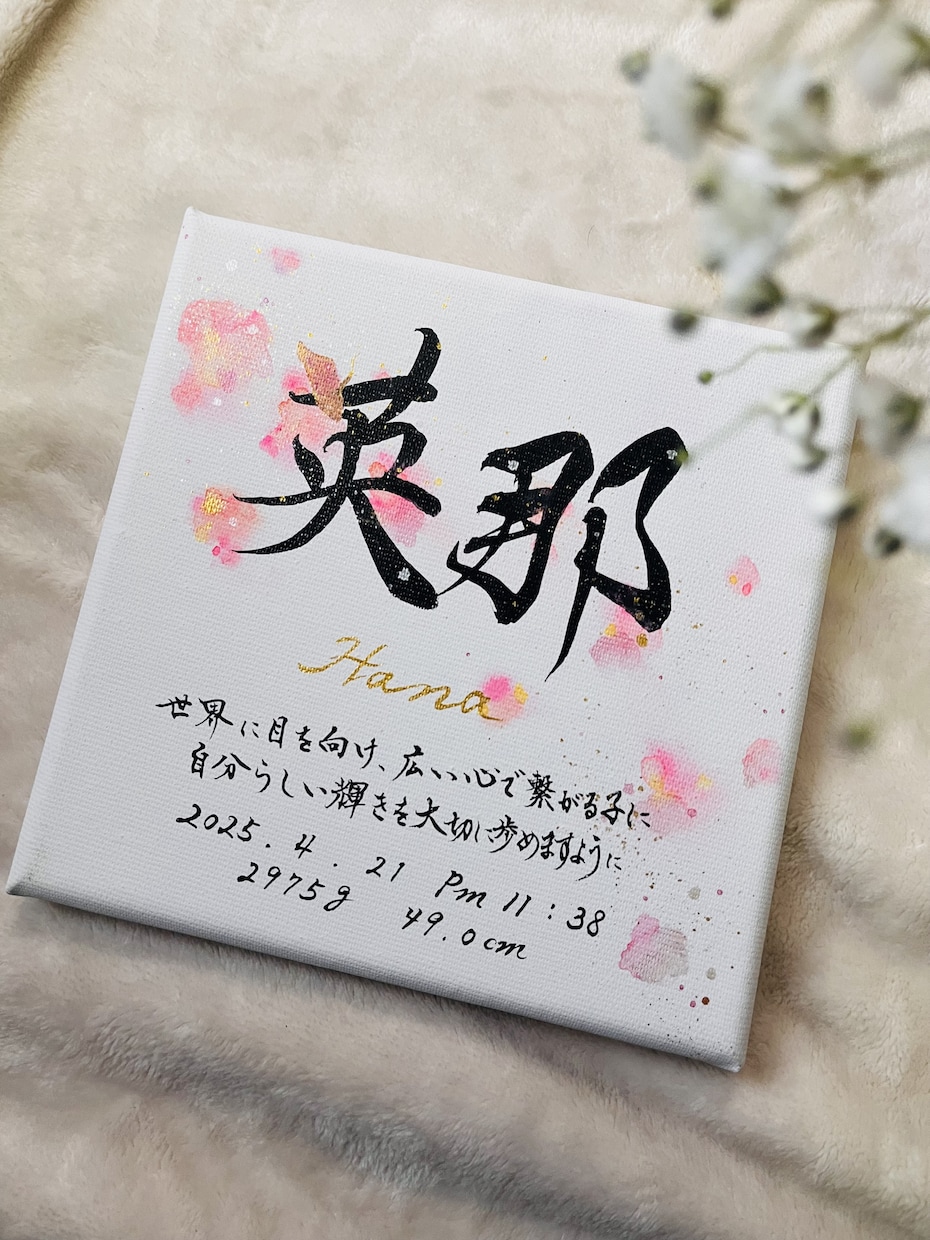 英那
Hana
世界に目を向け、広い心で繋がる子に
自分らしい輝きを大切に歩めますように
2025.4.21 Pm 11:38
2975g 49.0cm